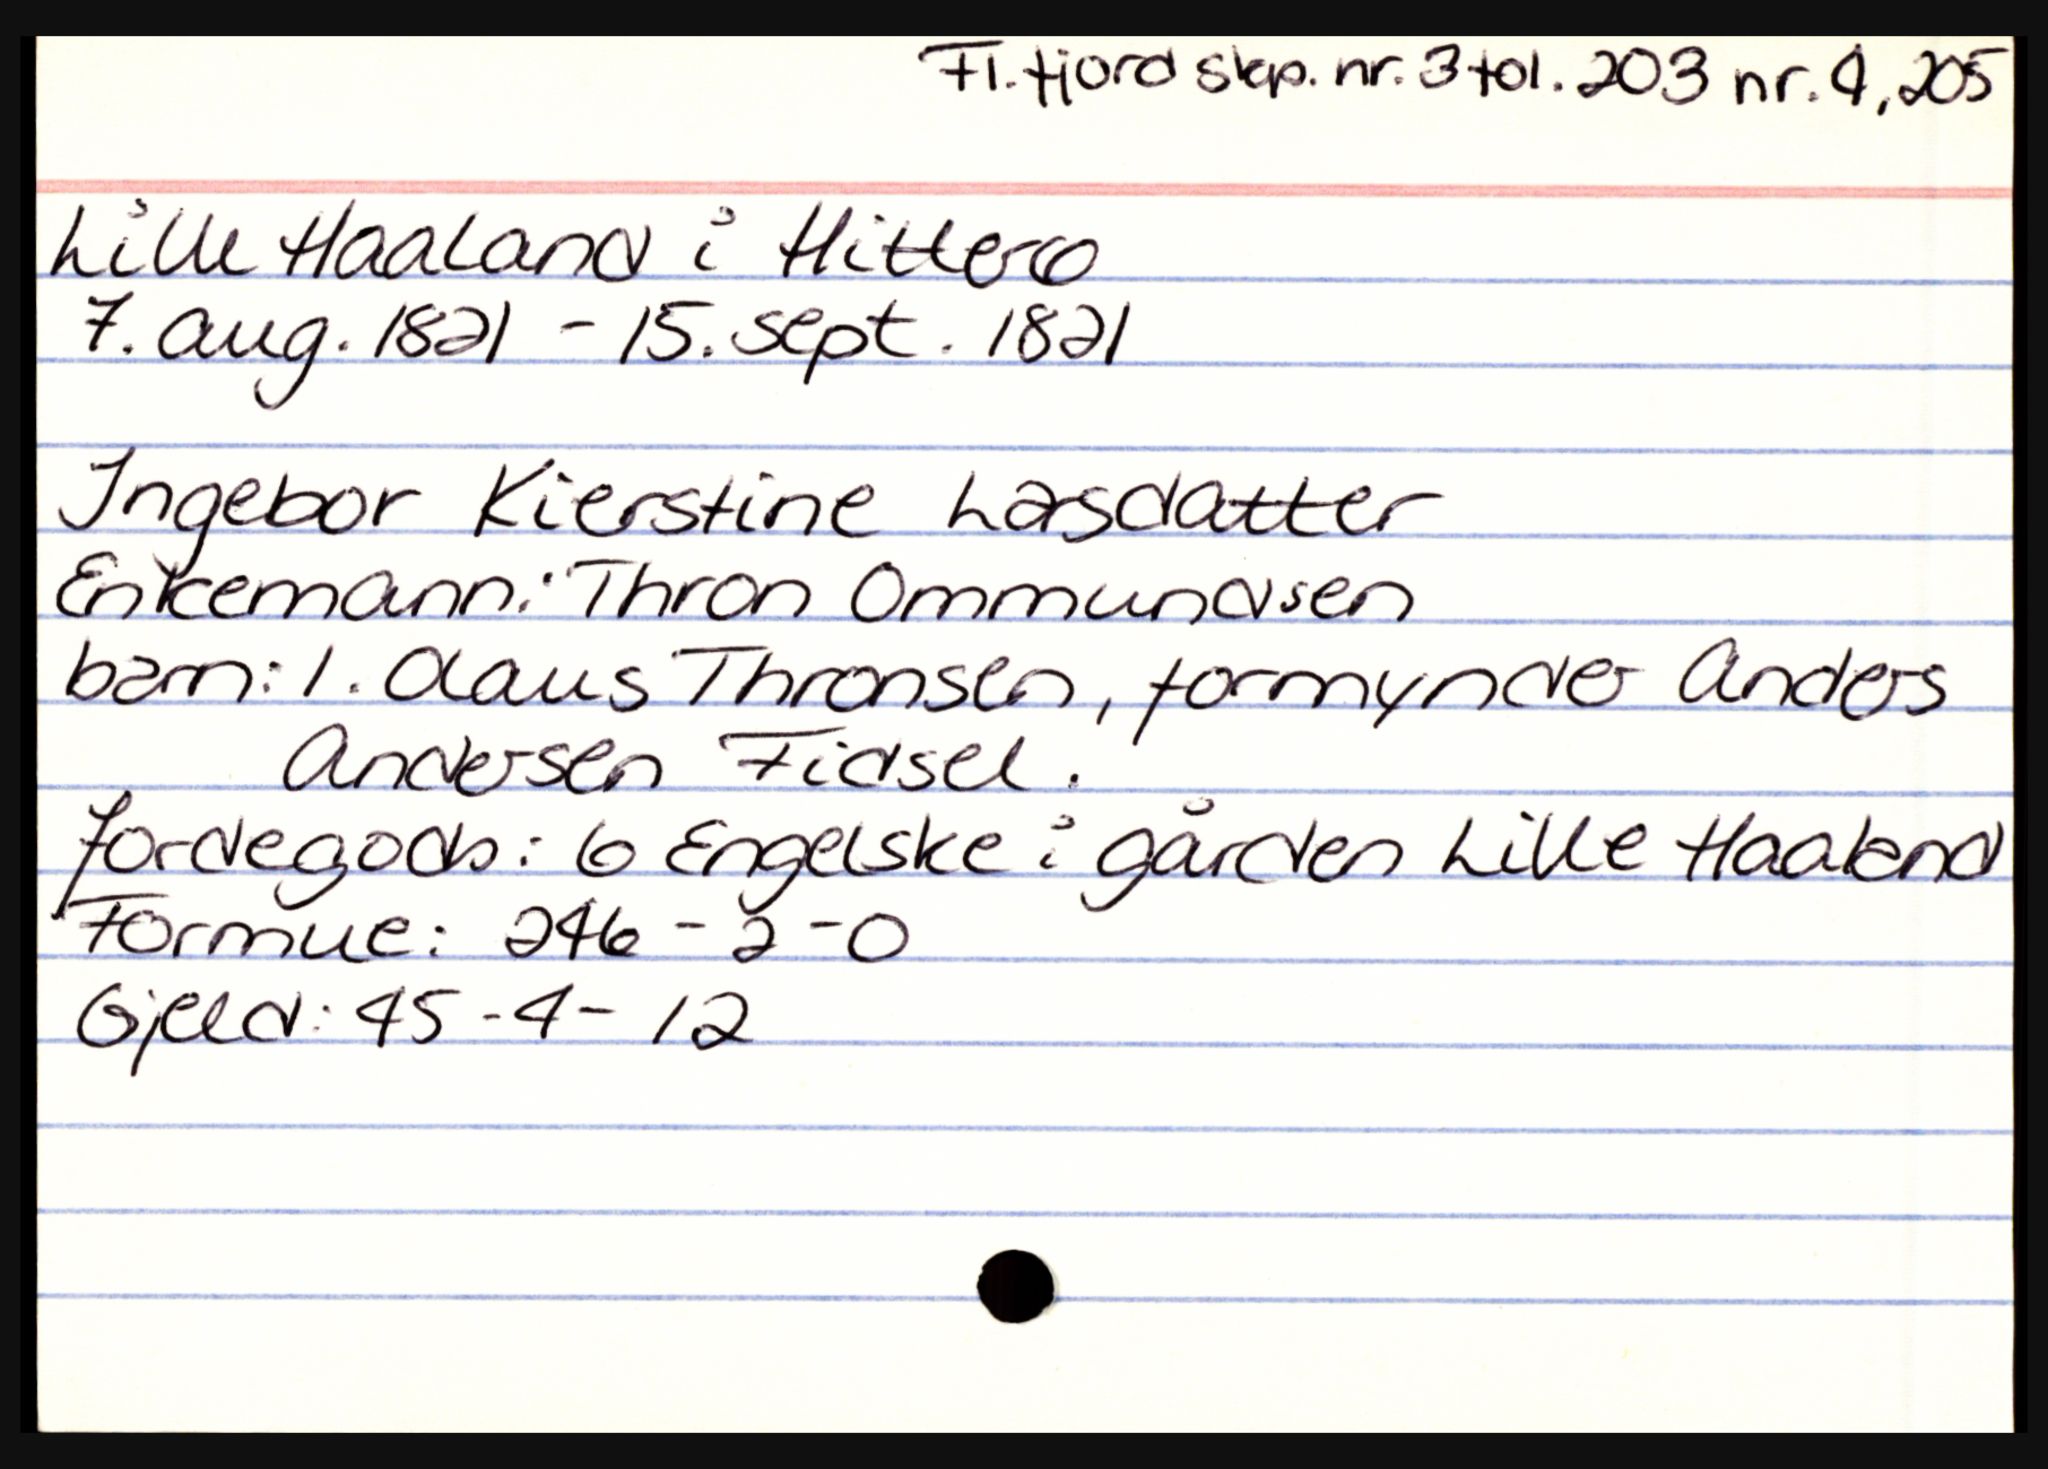 Fl.fjord skp. nr. 3 fol. 203 nr. 4, 205
Lille Haaland i Hitterø
7. aug. 1821 - 15. sept. 1821
Ingebor Kierstine Larsdatter
Enkemann: Thron Ommundsen
barn: 1. Olaus Thronsen, formynder Anders
Andersen Fidsel.
Jordegods: 6 Engelske i gården Lille Haaland
Formue: 246 - 2 - 0
Gjeld: 45 - 4 - 12